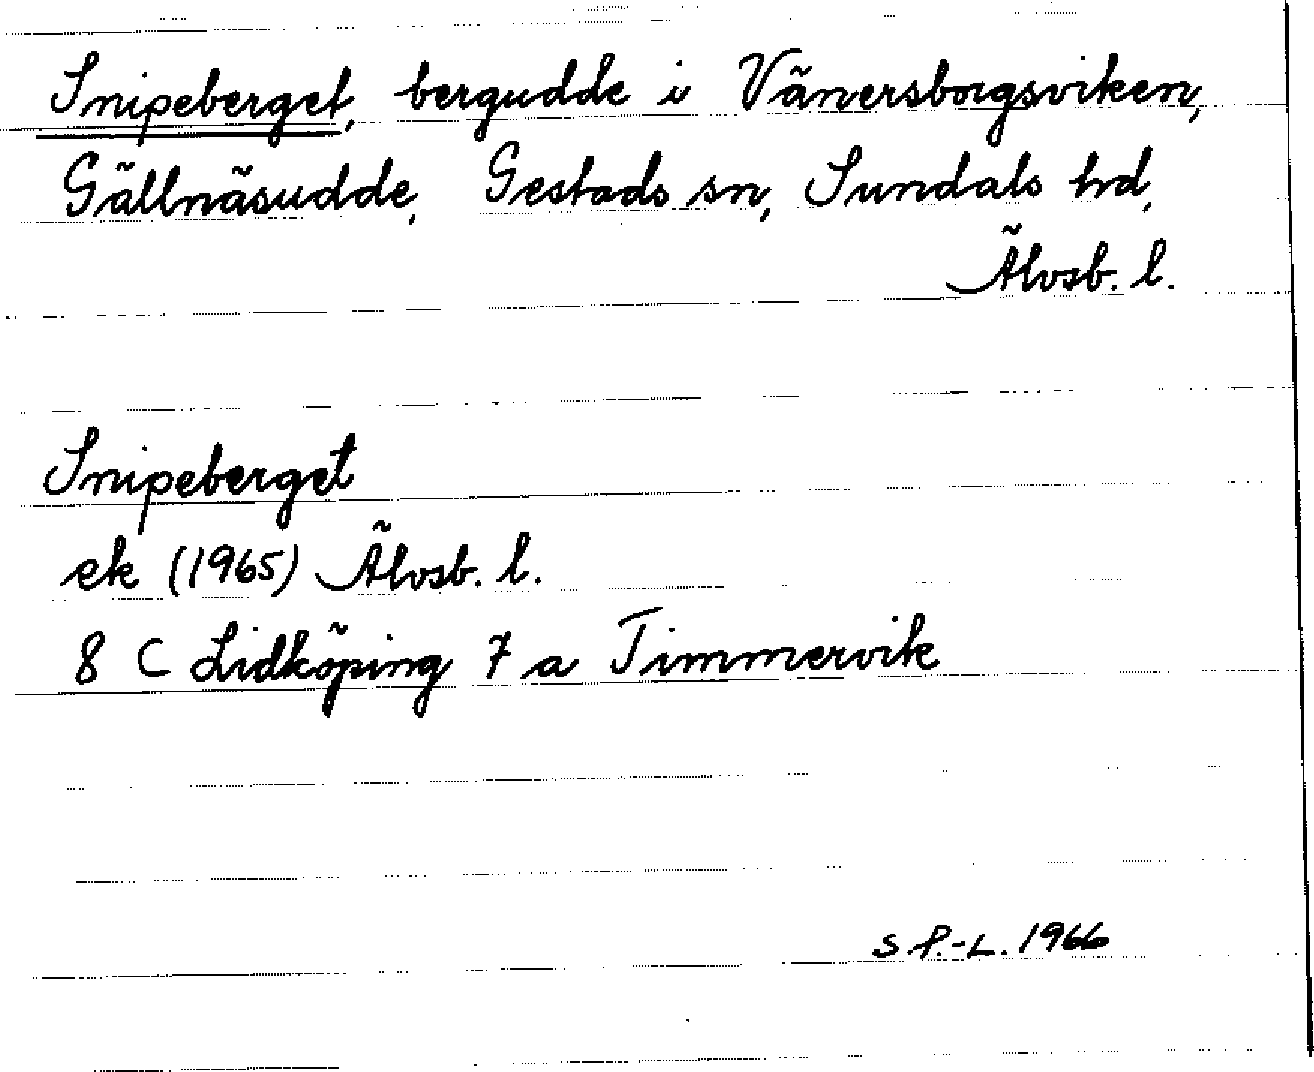 Snipeberget, bergudde i Vänersborgsviken,
Gällnäsudde, Gestads sn, Sundals hd,
Älvsb. l.
Snipeberget
ek (1965) Älvsb. l.
8 C Lidköping 7 a Timmervik
S P.-L. 1966